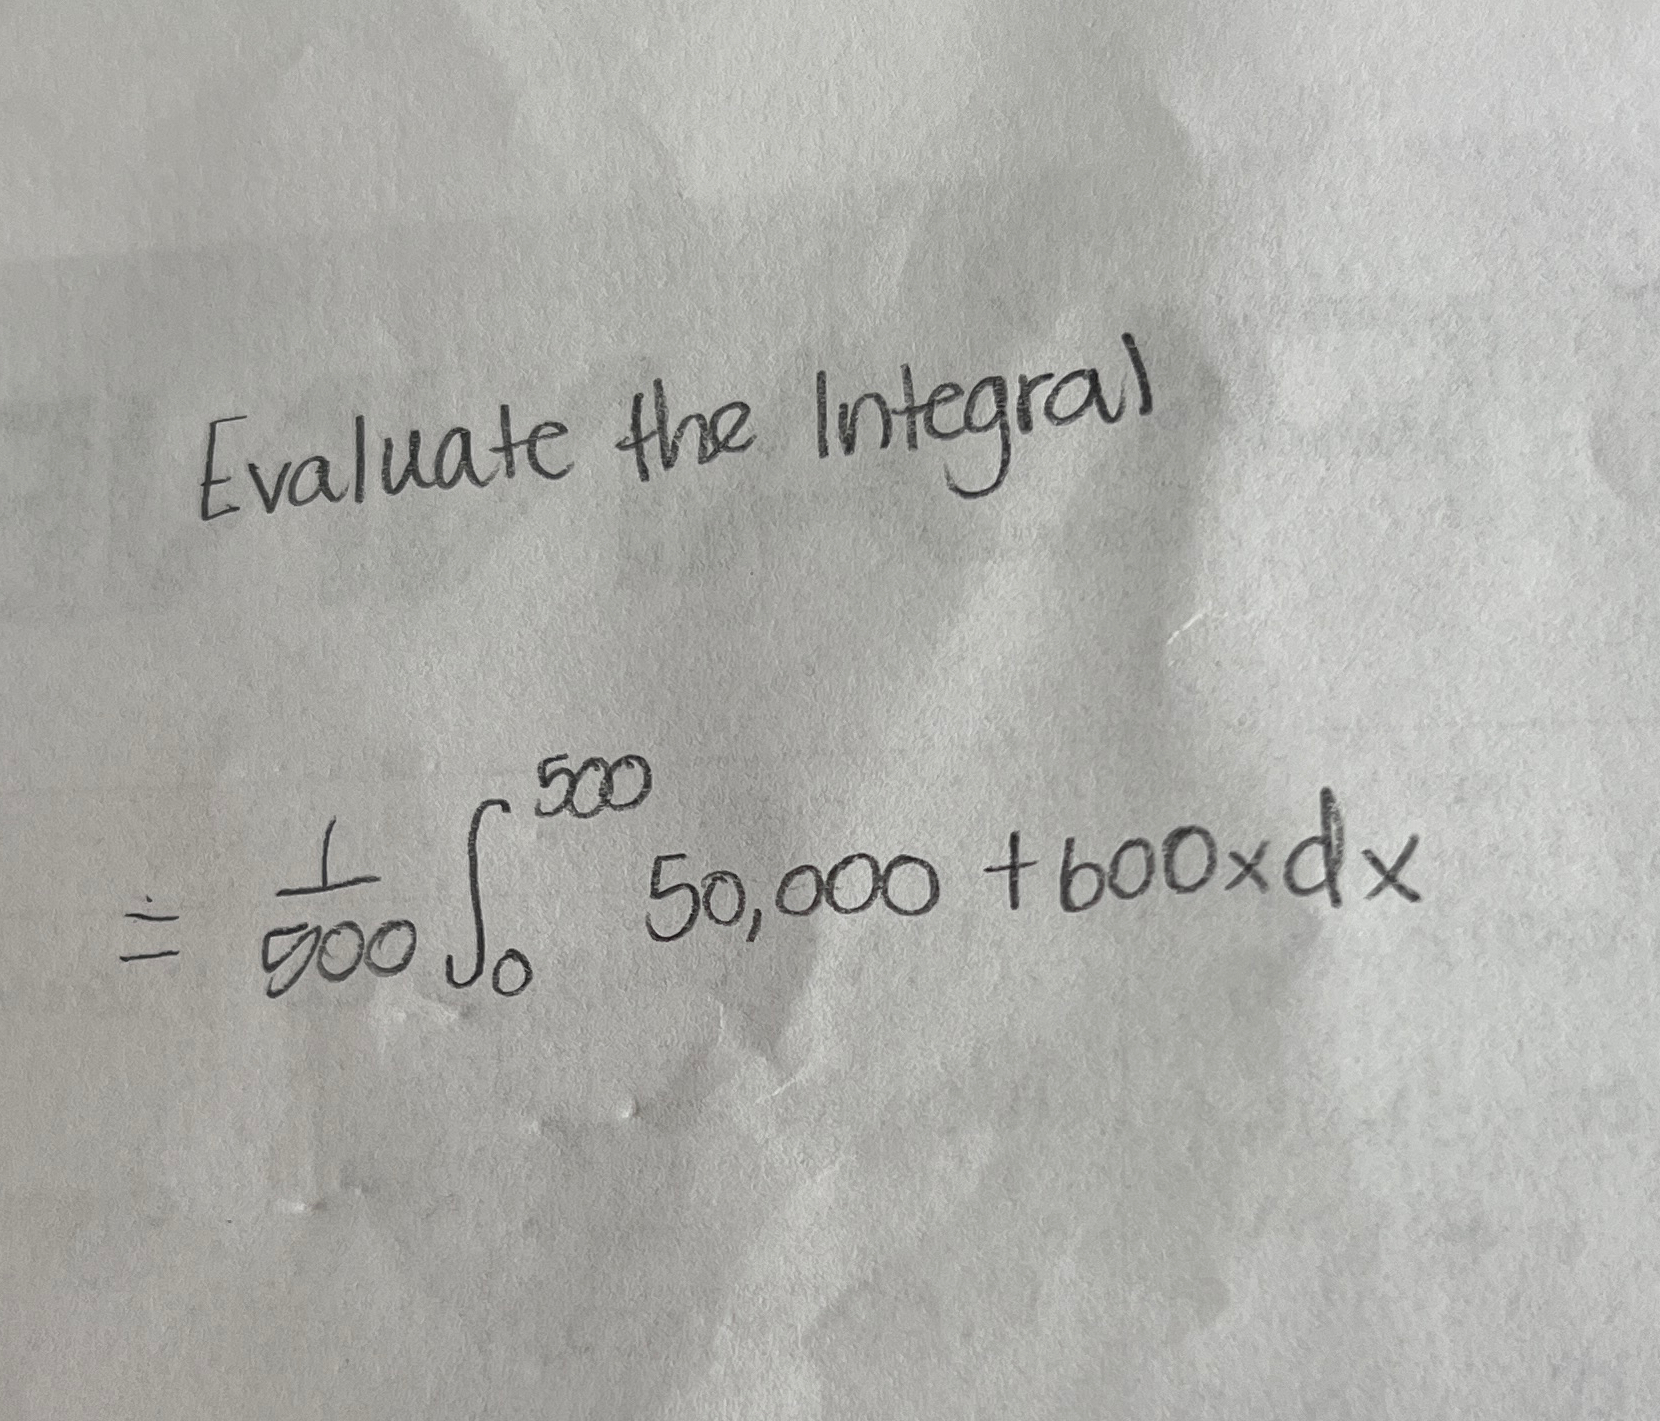 Evaluate the Integral
= 1/500 ∫₀⁵⁰⁰ 50,000 + 600x dx